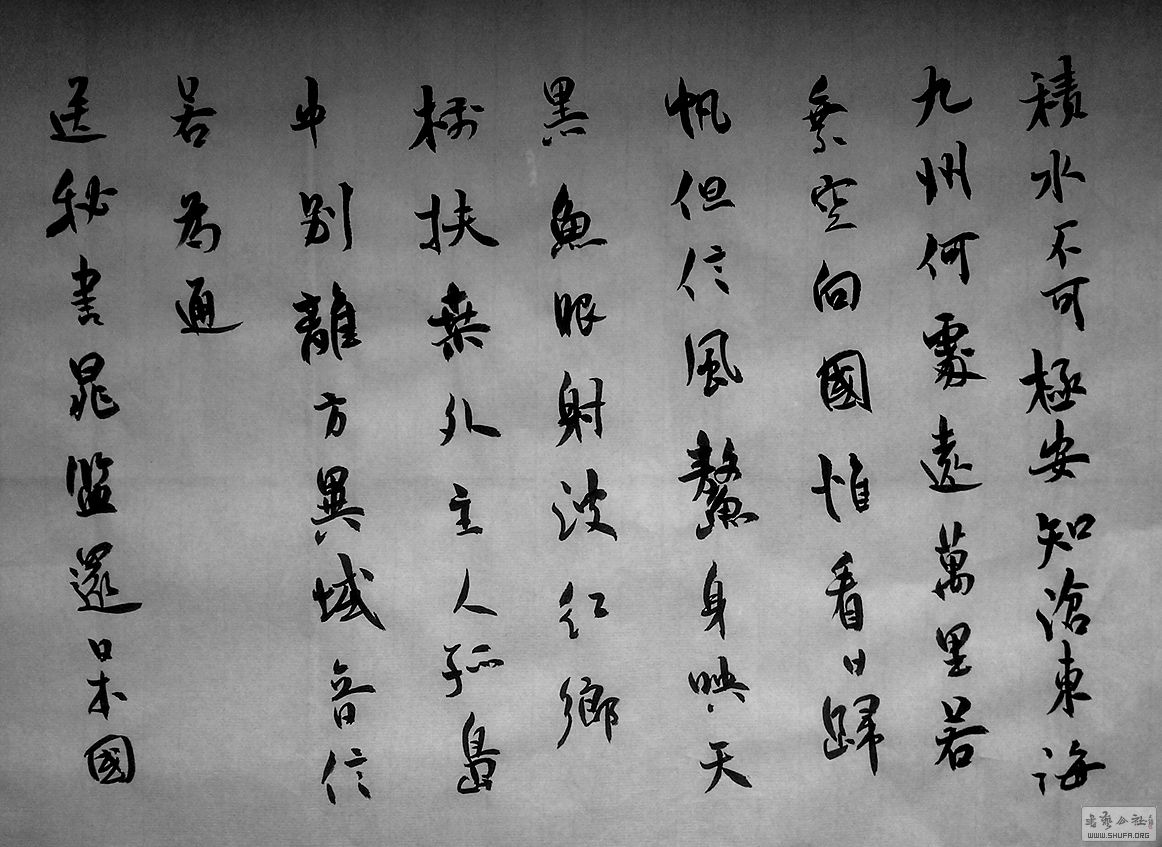 積水不可極安知滄東海
九州何處遠萬里若
乘空向國惟看日歸
帆但信風鰲身映天
黑魚眼射波紅鄉
樹扶桑外主人孤島
中別離方異域音信
若為通
送秘書晁监還日本國
书艺公社
WWW.SHUFA.ORG